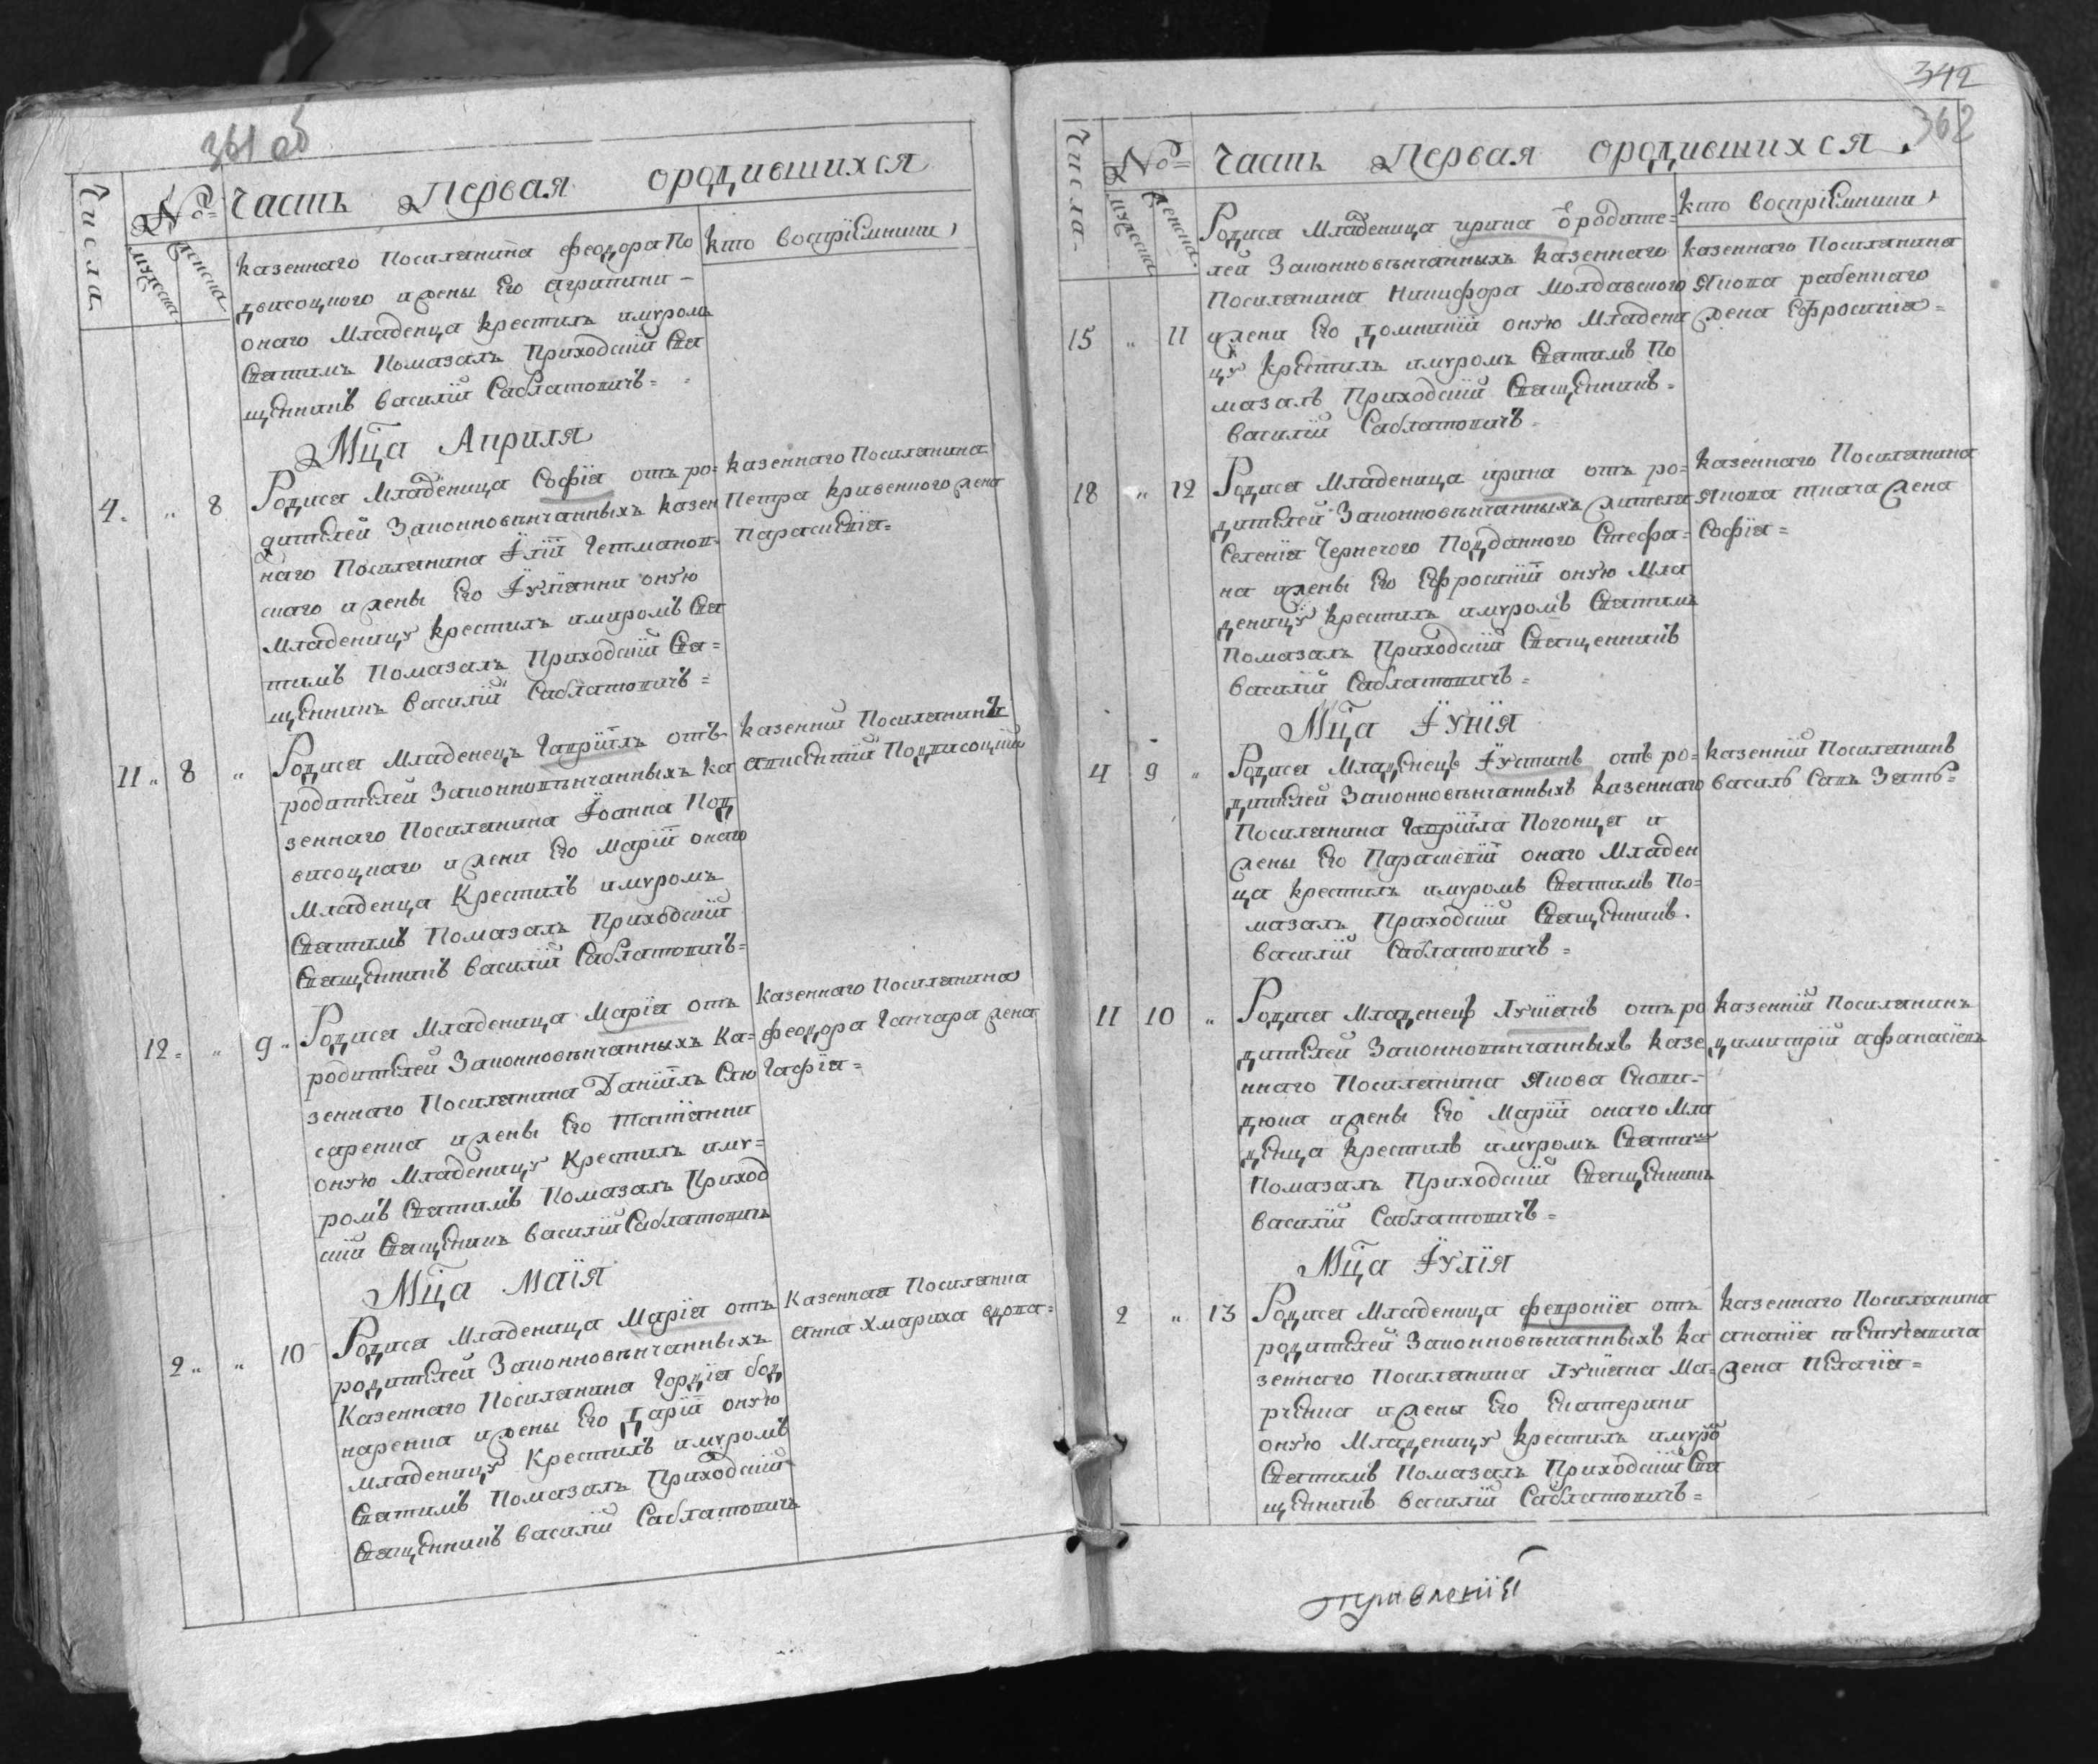 361 об
Числа
№
мужеска
женска
Часть Первая ородившихся
кто воспріемники
казеннаго Поселянина феодора По
двисоцного ижены Его агрипини –
онаго Младенца крестилъ имѵромъ
Святимъ Помазалъ Приходскій Свя
щенникъ василій Саблатовичъ =
Мца Априля
4. " 8
Родися Младеница Софїа отъ ро=
дителей Законновѣнчанныхъ казен
наго Поселянина Їлїи Гетманов
скаго ижены Его Їулїанни оную
Младеницу крестилъ имиромъ Свя
тимъ Помазалъ Приходскій Свя=
щенникъ Василій Саблатовичъ =
казеннаго Поселянина
Петра кривенкого жена
Параскевїа=
11 " 8 "
Родися Младенецъ Гавріилъ отъ
родителей Законновѣнчанныхъ ка
зеннаго Поселянина Їоанна Под
висоцкаго ижени Его Марїи онаго
Младенца Крестилъ имѵромъ
Святимъ Помазалъ Приходскій
Священникъ василій Саблатовичъ=
казенній Поселянинъ
авксентій Подвисоцкій
12 = " 9 "
Родися Младеница Марїа отъ
родителей Законновѣнчанныхъ Ка=
зеннаго Поселянина Данїилъ Слю
саренка иженъ Его Татїанни
оную Младеницу Крестилъ имѵ=
ромъ Святимъ Помазалъ Приход
скій Священикъ василій Саблатовичъ
казеннаго Поселянина
феодора Ганчара жена
Гафїа=
Мца Маїя
2 " " 10
Родися Младеница Марїа отъ
родителей Законновѣнчанныхъ
Казеннаго Поселянина Гордїа бод
наренка ижены Его Дарїи оную
младеницу Крестилъ имѵромъ
Святимъ Помазалъ Приходскій
Священникъ василій Саблатовичъ
Казенная Поселянка
анна Хмариха вдова=
342
362
Числа
№
мужеска
женска
Часть Первая ородившихся
кто воспріемники
15 " 11
Родися Младеница ирина ѿродите=
лей Законновѣнчанныхъ казеннаго
Поселянина Никифора Молдавского
ижени Его Домникїи оную Младени
цу крестилъ имѵромъ Святимъ По
мазалъ Приходскій Священникъ
василій Саблатовичъ
казеннаго Поселянина
Якова рабеннаго
жена Ефросинїа=
18 " 12
Родися Младеница ирина отъ ро=
дителей Законновѣнчанныхъ жителя
Селенїя Чернечого Подданного Стефа=
на ижены Его Ефросинїи оную Мла
деницу крестилъ имѵромъ Святимъ
Помазалъ Приходскій Священникъ
василій Саблатовичъ =
казеннаго Поселянина
Якова ткача жена
Софїа=
Мца Їунїя
4 9 "
Родися Младенецъ Їустинъ отъ ро=
дителей Законновѣнчанныхъ казеннаго
Поселянина Гавріила Погонца и
жены Его Параскевїи онаго Младен
ца крестилъ имѵромъ Святимъ По=
мазалъ Приходскій Священникъ
василій Саблатовичъ =
казенній Поселянинъ
василь Савъ Зять=
11 10 "
Родися Младенецъ Лукїанъ отъ ро
дителей Законновѣнчанныхъ казе
ннаго Поселянина Якова Скопи-
дюка иженъ Его Марїи онаго Мла
денца крестилъ имѵромъ Святим
Помазалъ Приходскій Священникъ
василій Саблатовичъ =
казенній Поселянинъ
димитрій афанасїевъ
Мца Їулїя
2 " 13
Родися Младеница февронїа отъ
родителей Законновѣнчанныхъ ка
зеннаго Поселянина Лукїана Ма=
рченка ижены Его Екатерини
оную Младеницу крестилъ имѵро
Святимъ Помазалъ Приходскій Свя
щенникъ василій Саблатовичъ=
казеннаго Поселянина
ананїа
жена Пелагїа=